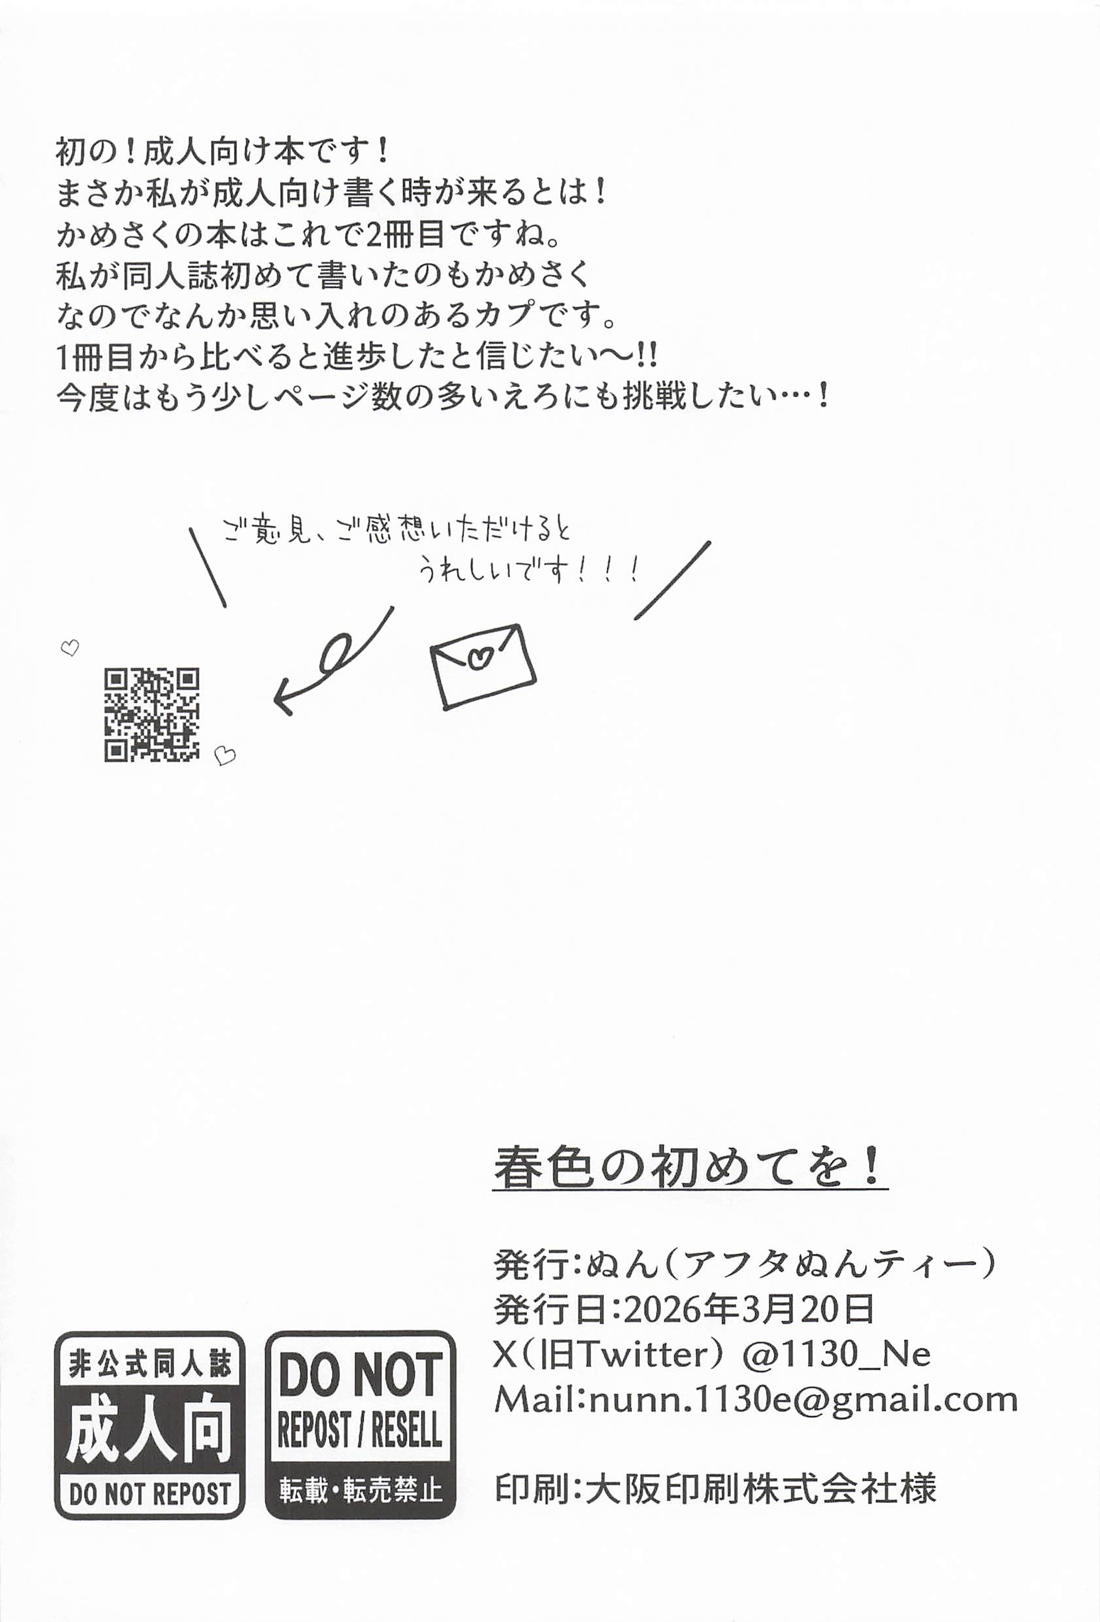 初の！成人向け本です！
まさか私が成人向け書く時が来るとは！
かめさくの本はこれで2冊目ですね。
私が同人誌初めて書いたのもかめさく
なのでなんか思い入れのあるカプです。
1冊目から比べると進歩したと信じたい～!!
今度はもう少しページ数の多いえろにも挑戦したい…！
ご意見、ご感想いただけると
うれしいです！！！
春色の初めてを！
発行:ぬん(アフタぬんティー)
発行日:2026年3月20日
X(旧Twitter) @1130_Ne
Mail:nunn.1130e@gmail.com
印刷:大阪印刷株式会社様
非公式同人誌
成人向
DO NOT REPOST
DO NOT
REPOST / RESELL
転載・転売禁止